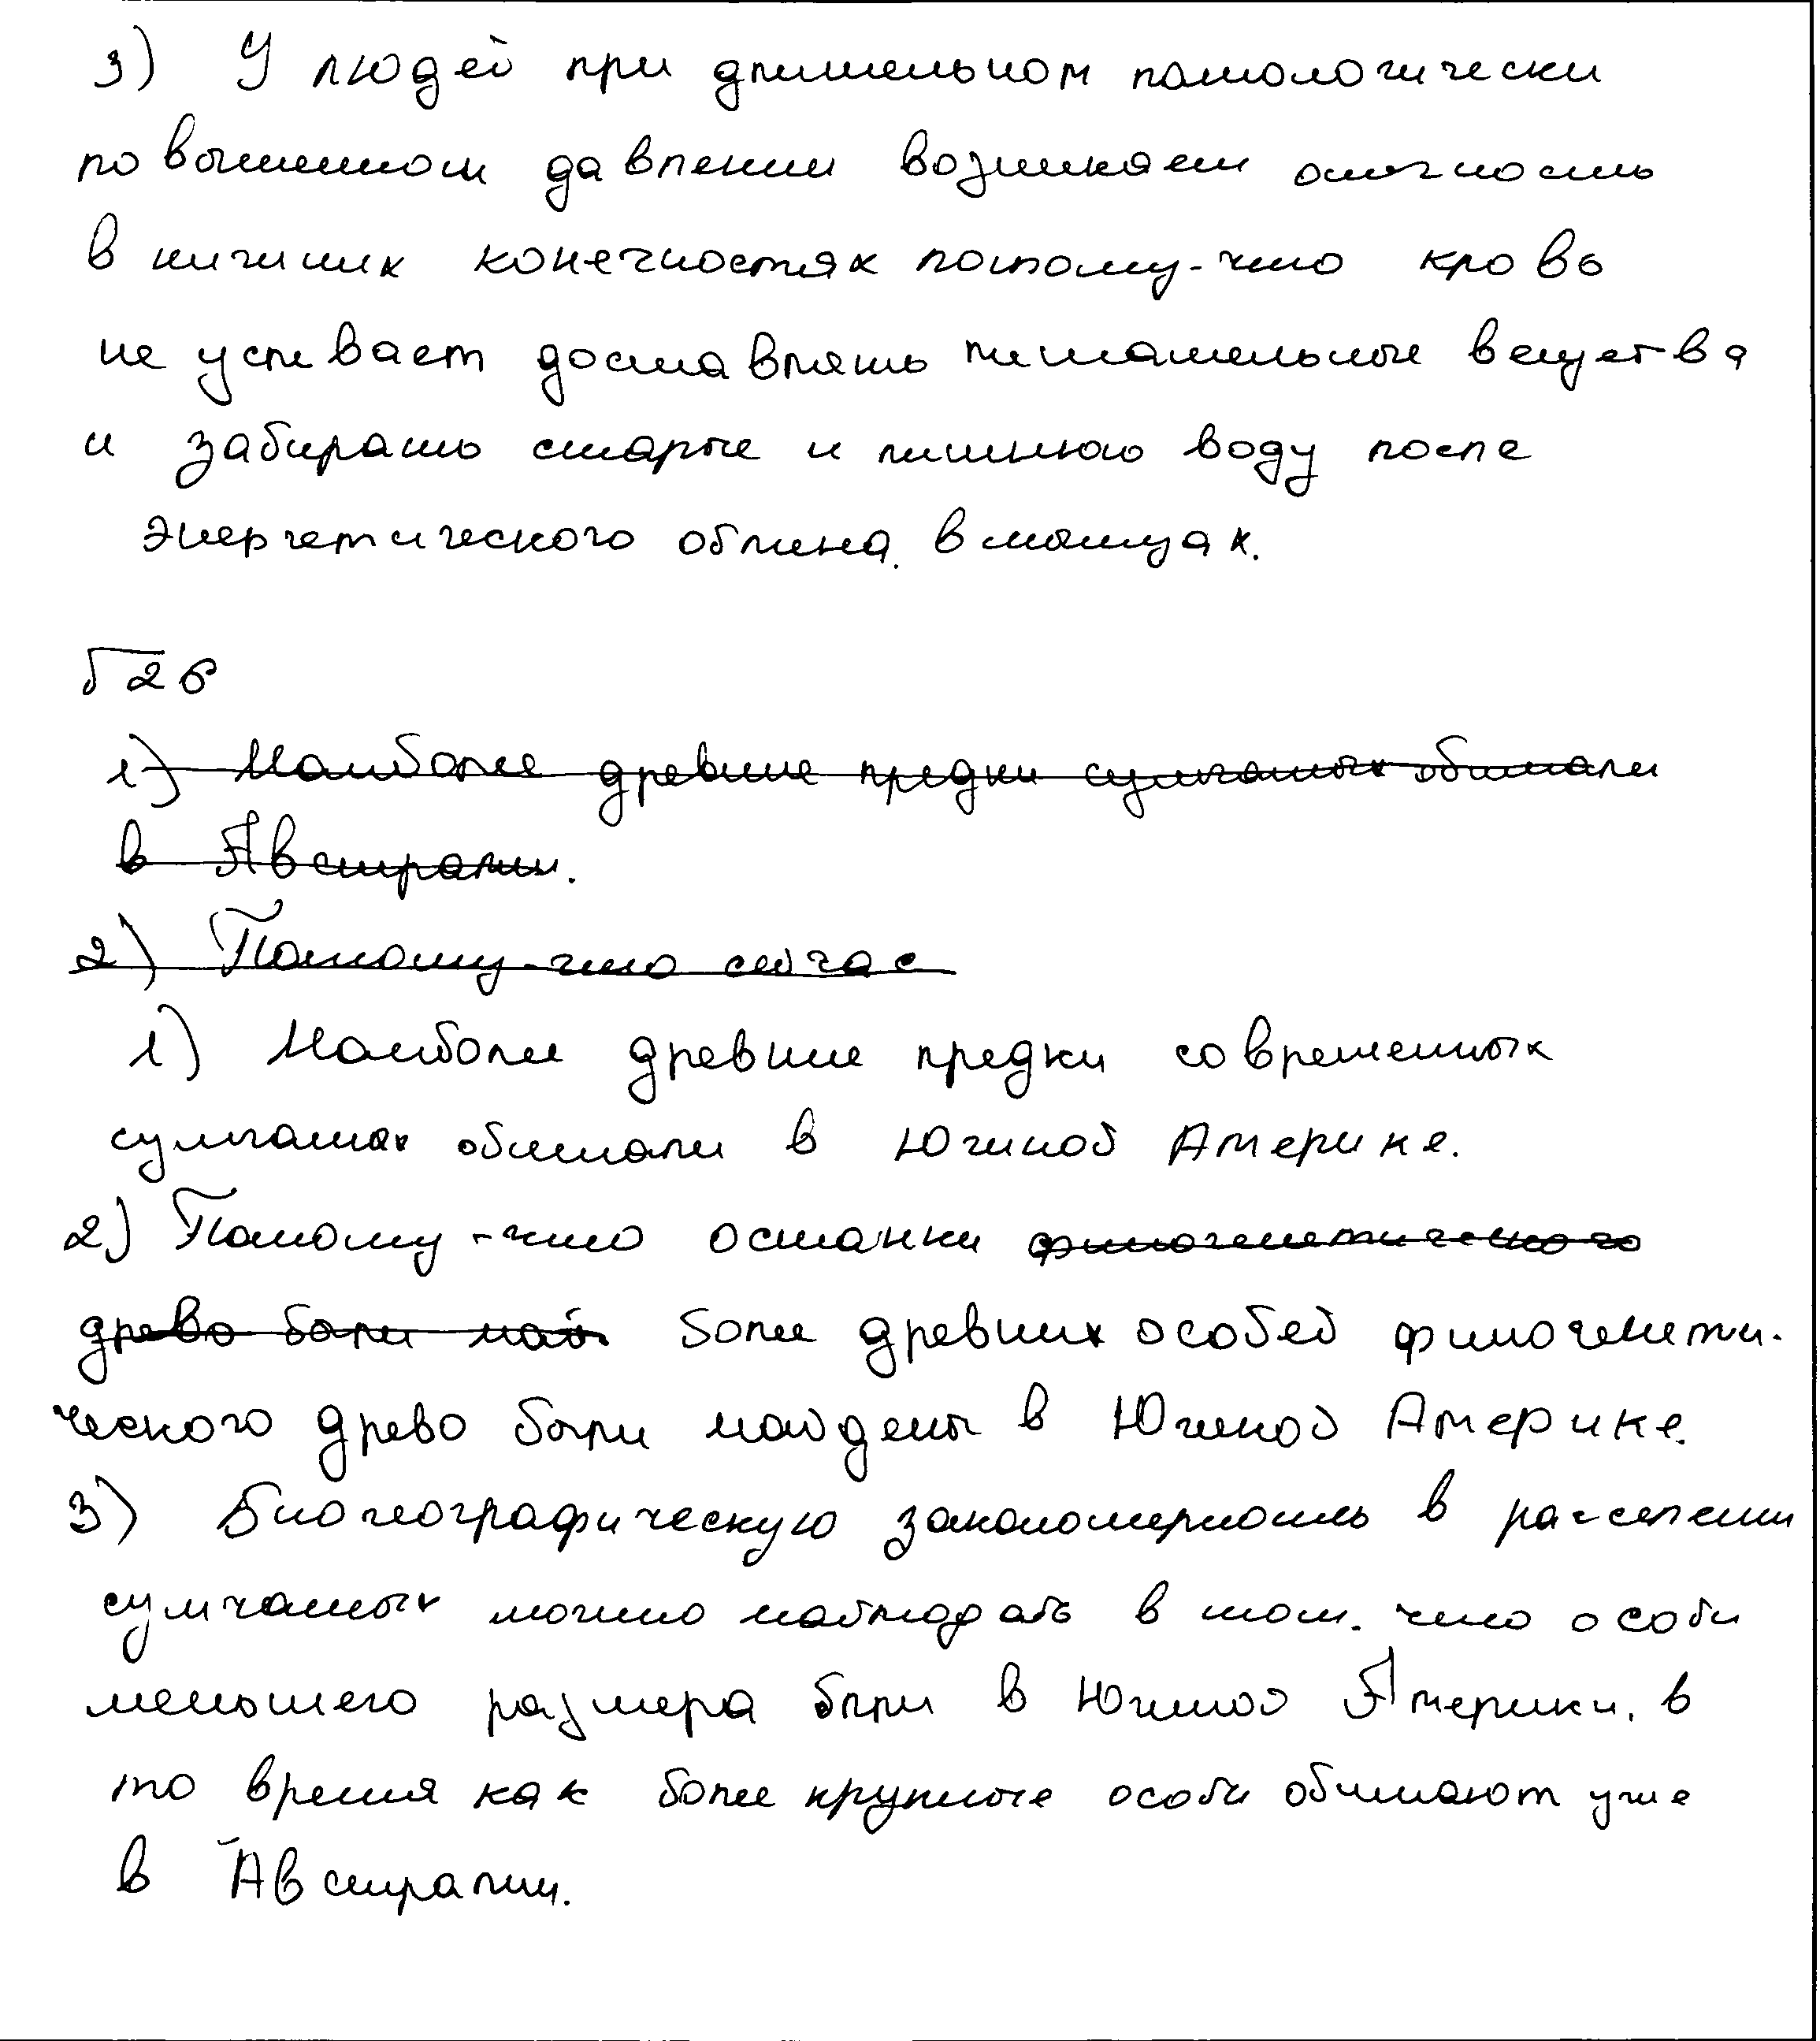 3) У людей при длительном патологически
повышенном давлении возникает отёчность
в нижних конечностях потому-что кровь
не успевает доставлять питательные вещества
и забирать старые и лишнюю воду после
энергетического обмена. в мышцах.
26
1) Наиболее древние предки сумчатых обитали
в Австралии.
2) Потому-что сейчас
1) Наиболее древние предки современных
сумчатых обитали в Южной Америке.
2) Потому-что останки филогенетического
древо были най. более древних особей филогенети-
ческого древо были найдены в Южной Америке.
3) Биогеографическую закономерность в расселении
сумчатых можно наблюдать в том. что особи
меньшего размера были в Южной Америки. в
то время как более крупные особи обитают уже
в Австралии.